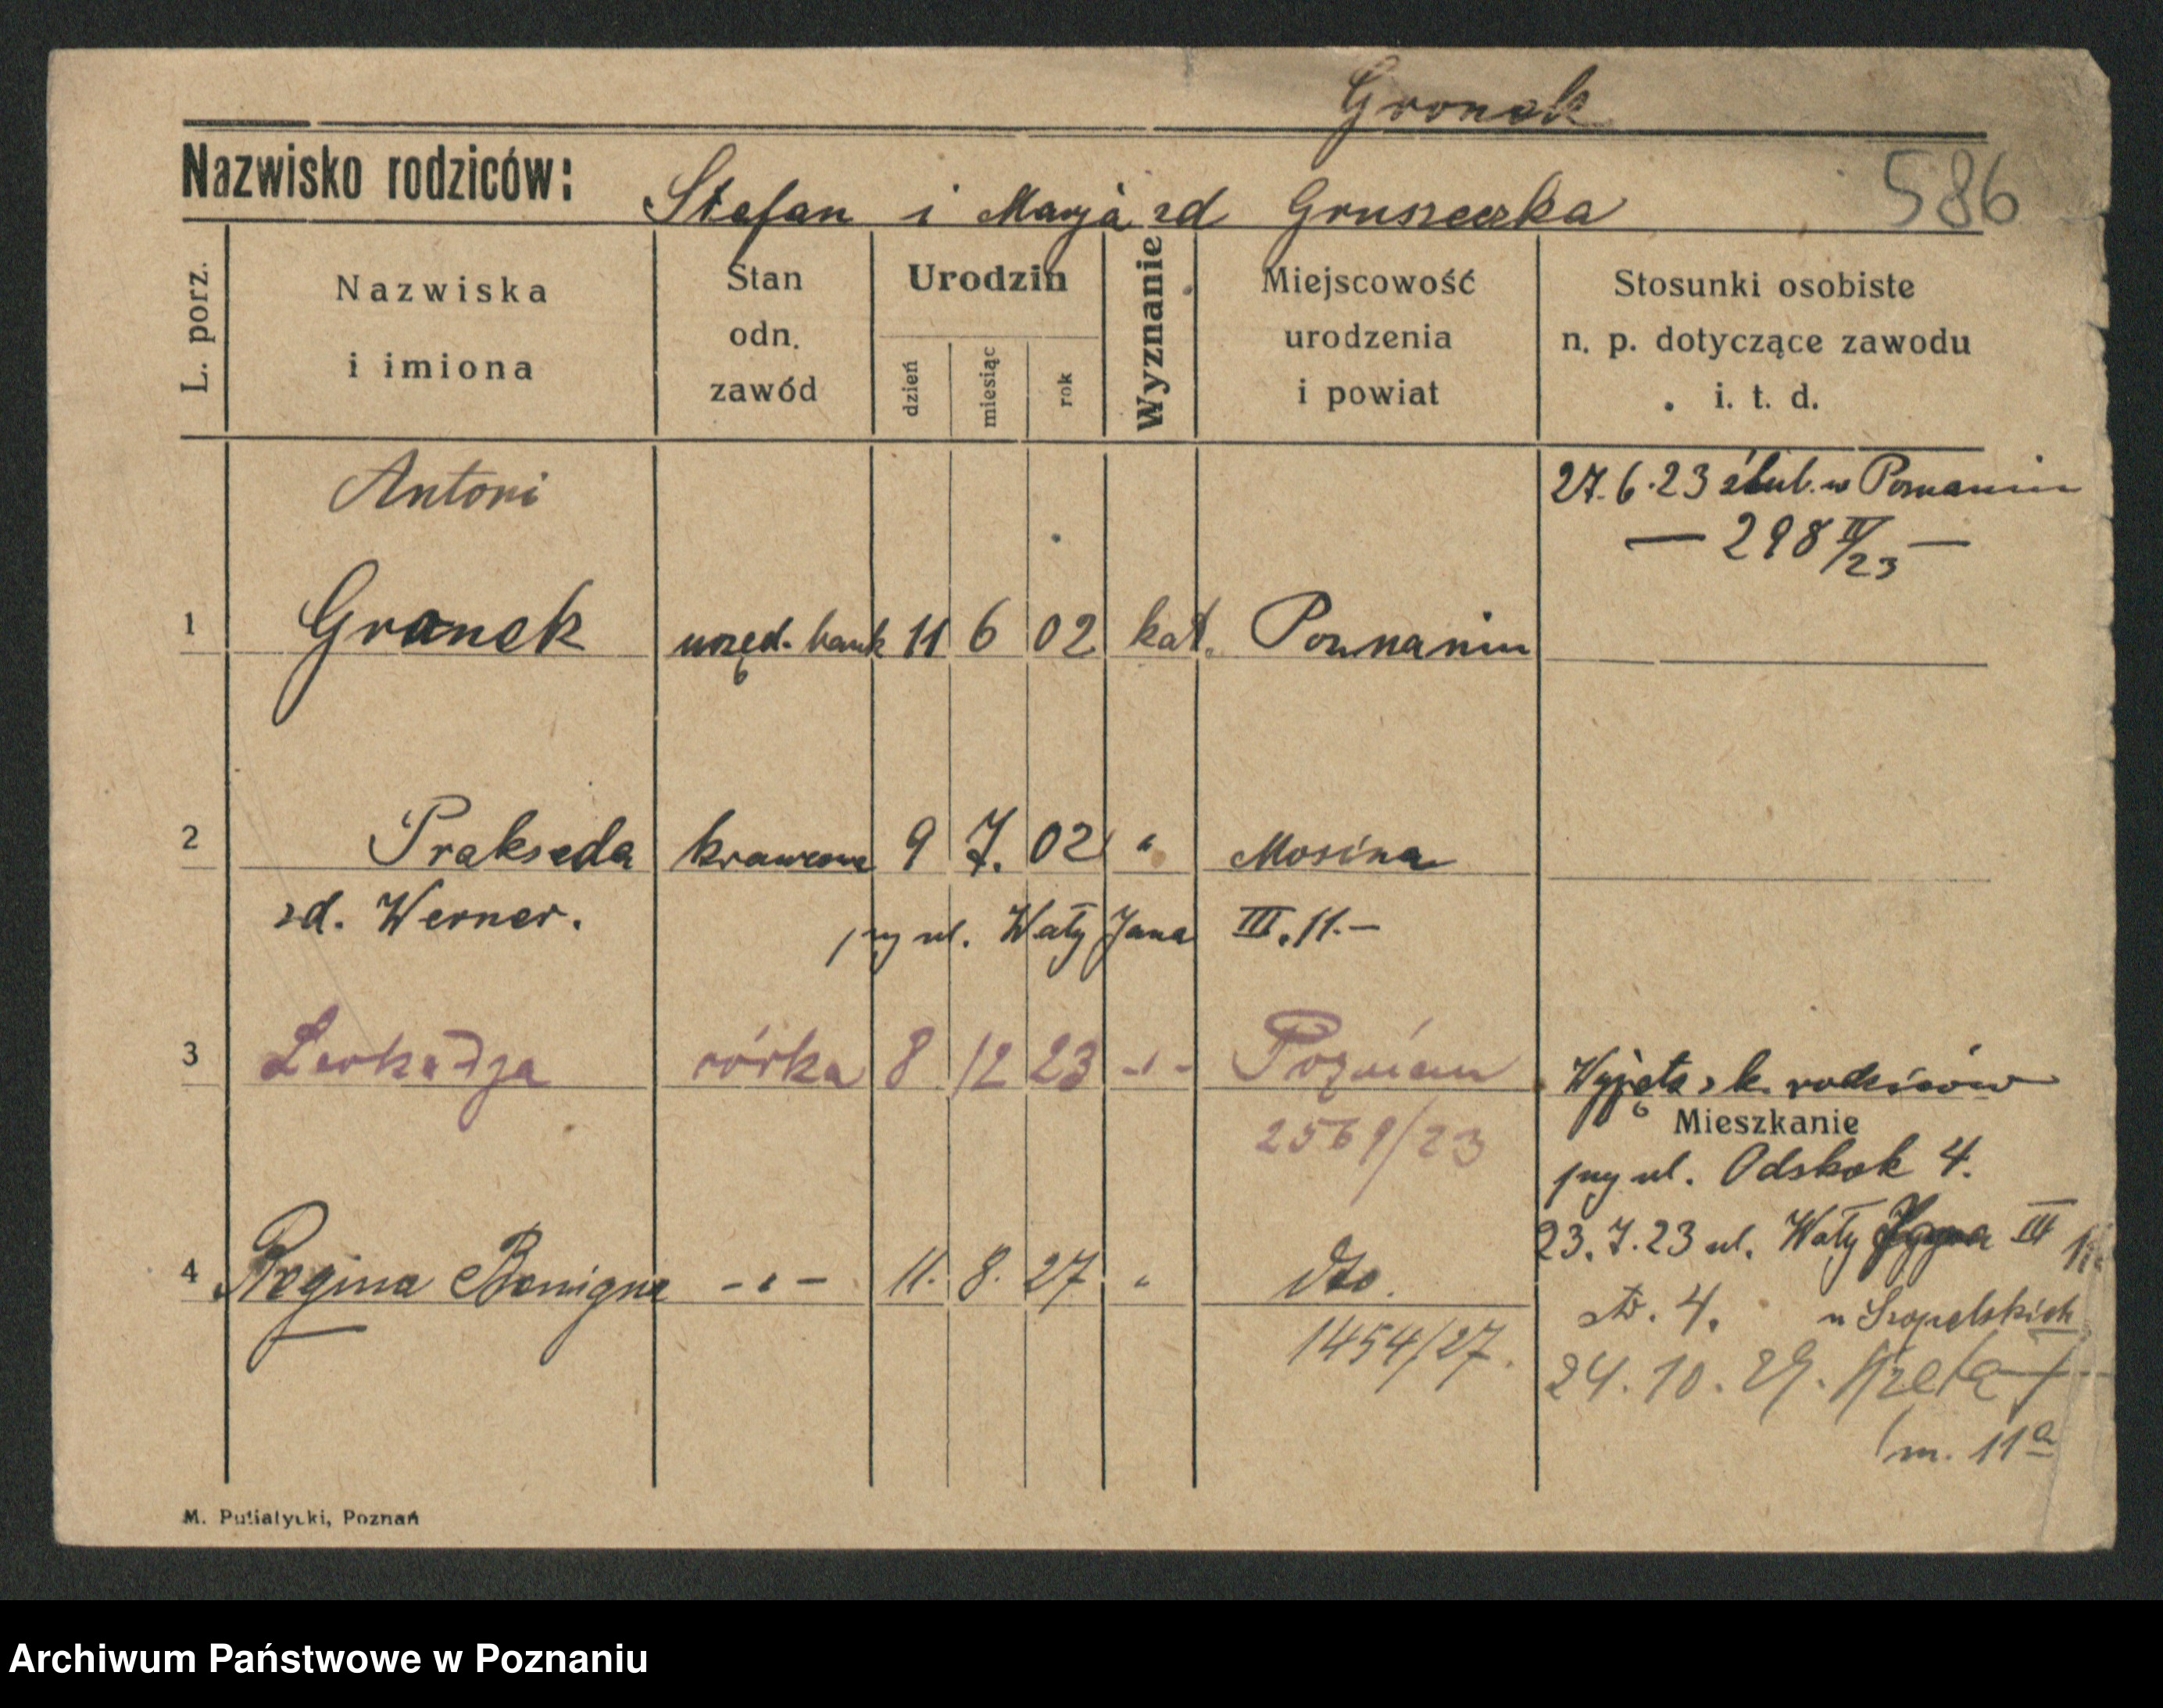 Gronek
Nazwisko rodziców: Stefan i Marja zd Gruszeczka
586
L. porz.
Nazwiska i imiona
Stan odn. zawód
Urodzin
dzień
miesiąc
rok
Wyznanie
Miejscowość urodzenia i powiat
Stosunki osobiste n. p. dotyczące zawodu i. t. d.
27.6.23 ślub. w Poznaniu
— 298 II/23 —
Antoni
1 Gronek urzęd. bank 11 6 02 kat. Poznaniu
2 Prakseda krawcowa 9 7. 02 " Mosina
zd. Werner. przy ul. Wały Jana III. 11.-
3 Leokadja córka 8 12 23 -"- Poznań Wyjęta z k. rodziców
2569/23
Mieszkanie
przy ul. Odskok 4.
23.7.23 ul. Wały Jana III 11
4 Regina Benigna -"- 11. 8. 27 " dto.
1454/27.
4. u
24.10.29.
m. 11a
M. Putiatycki, Poznań
Archiwum Państwowe w Poznaniu